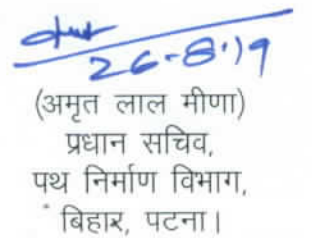 26-8-19
(अमृत लाल मीणा)
प्रधान सचिव,
पथ निर्माण विभाग,
बिहार, पटना।